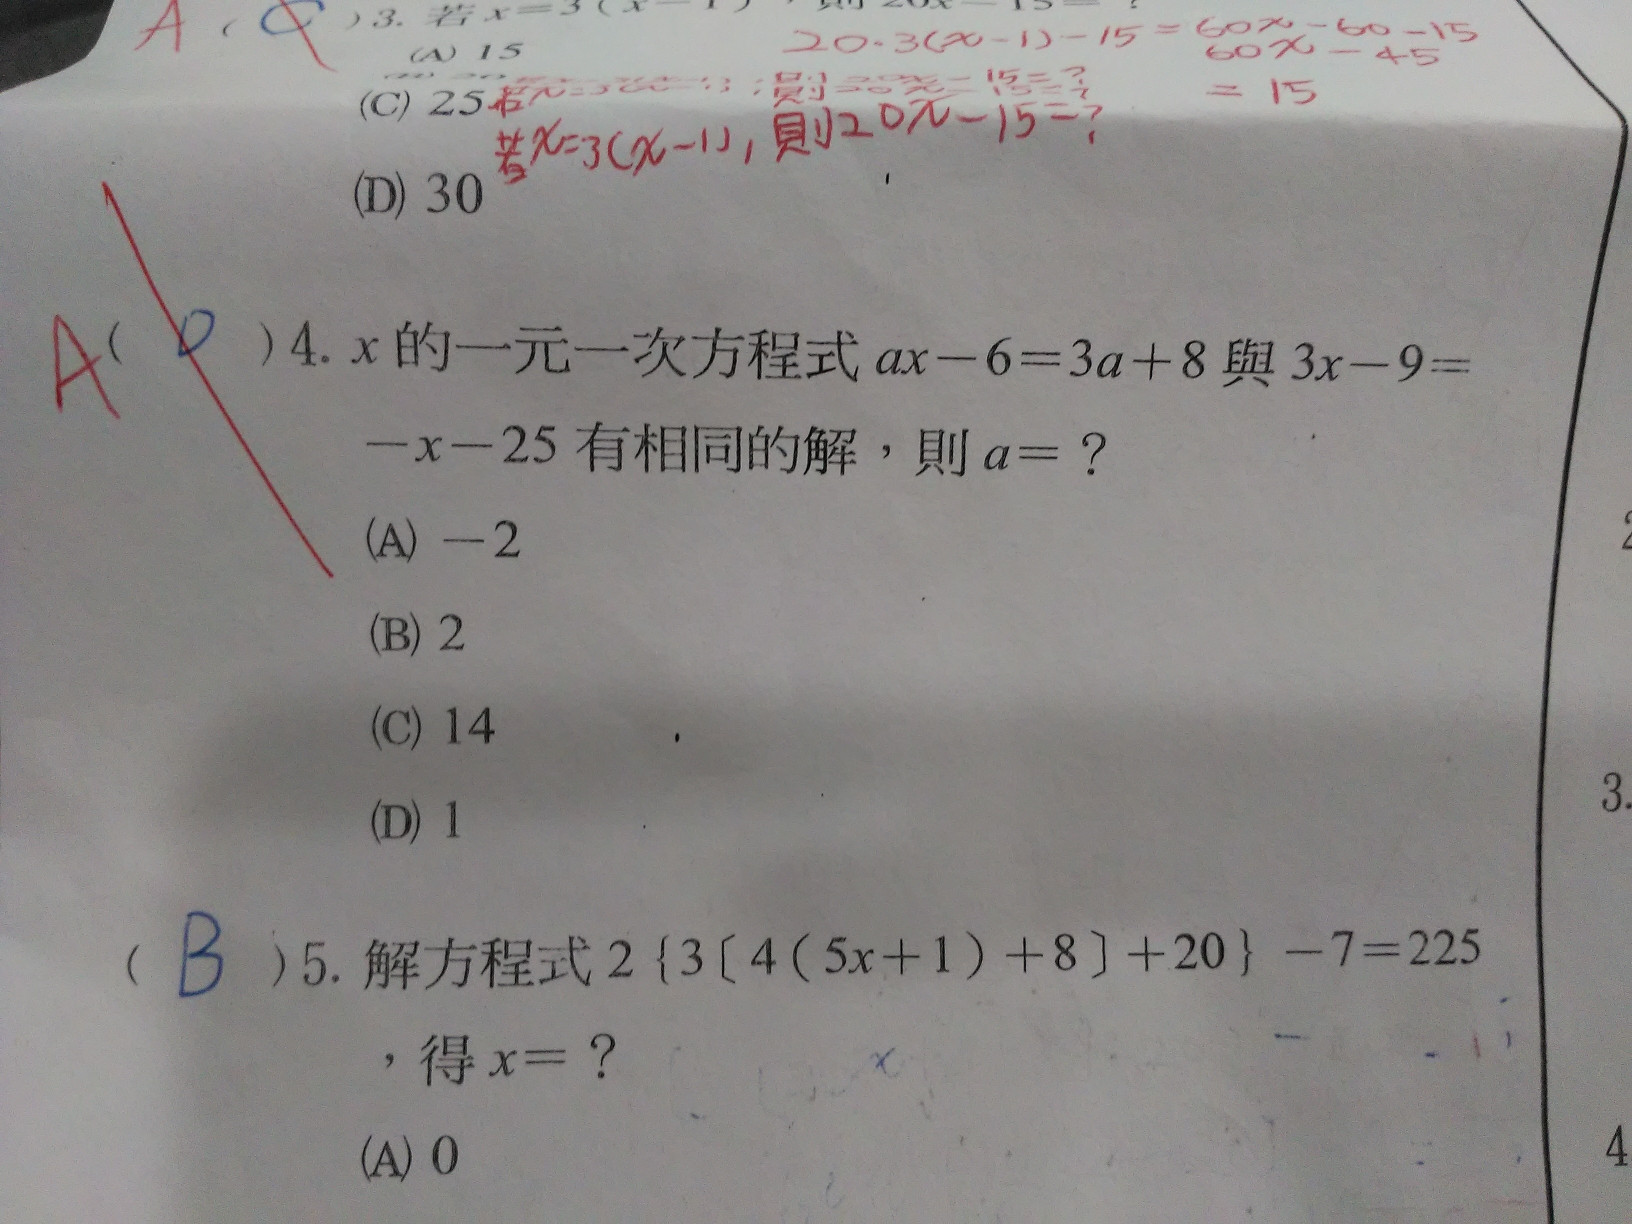 A ( C ) 3. 若 x=3(x-1)，則 20x-15=？
20·3(x-1)-15=60x-60-15
(A) 15
60x-45
=15
(C) 25
若x=3(x-1)，則20x-15=?
(D) 30
A ( D ) 4. x 的一元一次方程式 ax-6=3a+8 與 3x-9=
-x-25 有相同的解，則 a=？
(A) -2
(B) 2
(C) 14
(D) 1
( B ) 5. 解方程式 2{3〔4(5x+1)+8〕+20}-7=225
，得 x=？
x
(A) 0
3.
4